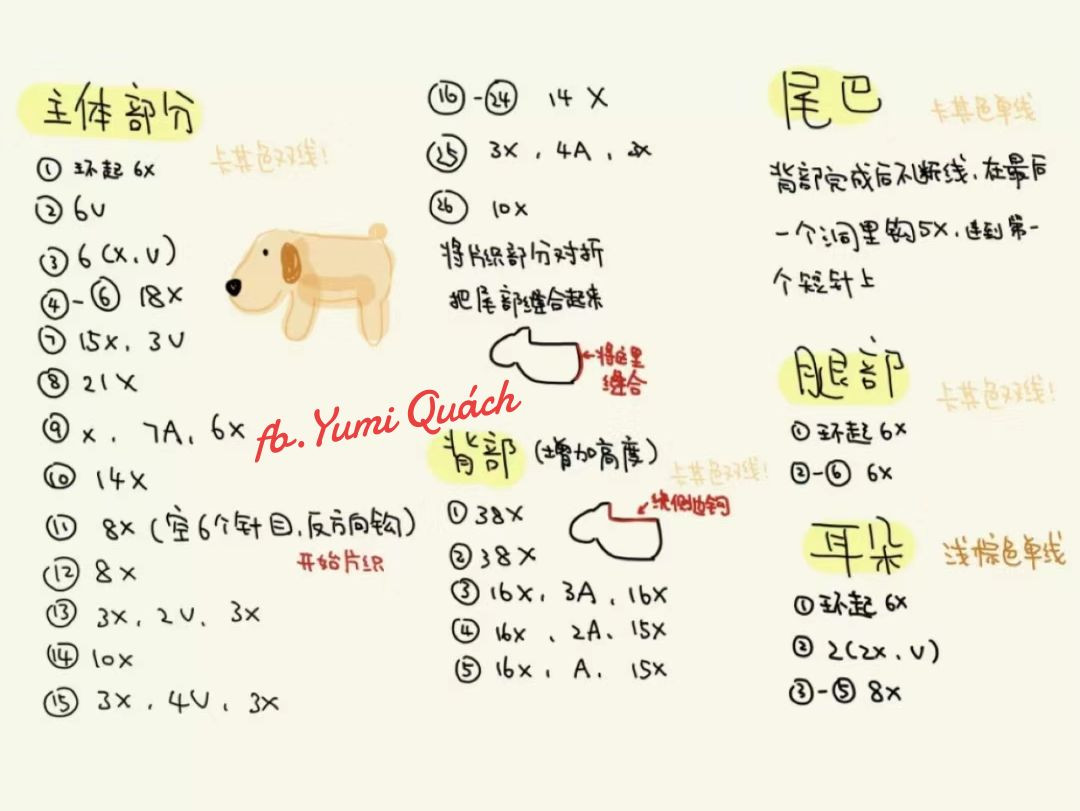 主体部分
卡其色双线！
① 环起 6x
② 6v
③ 6(x, v)
④-⑥ 18x
⑦ 15x, 3v
⑧ 21x
⑨ x, 7A, 6x
⑩ 14x
⑪ 8x (空6个针目, 反方向钩)
开始片织
⑫ 8x
⑬ 3x, 2v, 3x
⑭ 10x
⑮ 3x, 4v, 3x
⑯-㉔ 14x
㉕ 3x, 4A, 3x
㉖ 10x
将片织部分对折
把尾部缝合起来
←将这里
缝合
fb.Yumi Quách
背部 (增加高度)
卡其色双线！
绕侧边钩
① 38x
② 38x
③ 16x, 3A, 16x
④ 16x, 2A, 15x
⑤ 16x, A, 15x
尾巴
卡其色单线
背部完成后不断线, 在最后
一个洞里钩5x, 连到第一
个短针上
腿部
卡其色双线！
① 环起 6x
②-⑥ 6x
耳朵
浅棕色单线
① 环起 6x
② 2(2x, v)
③-⑤ 8x